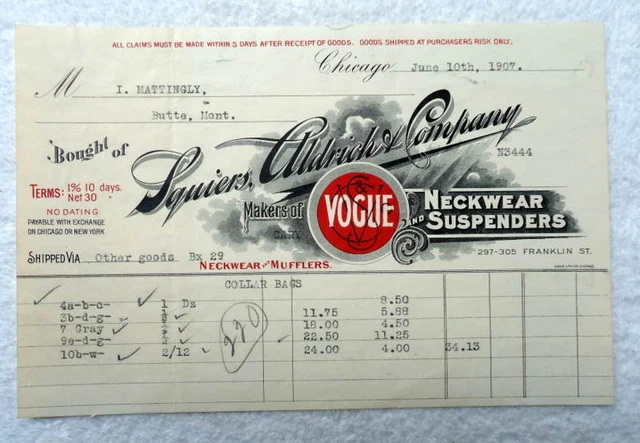 ALL CLAIMS MUST BE MADE WITHIN 5 DAYS AFTER RECEIPT OF GOODS. GOODS SHIPPED AT PURCHASERS RISK ONLY.
Chicago June 10th, 1907.
M I. MATTINGLY,
Butte, Mont.
Bought of Squiers, Aldrich & Company
N3444
TERMS: 1% 10 days.
Net 30
NO DATING
PAYABLE WITH EXCHANGE
ON CHICAGO OR NEW YORK
Makers of VOGUE NECKWEAR
AND SUSPENDERS
297-305 FRANKLIN ST.
SHIPPED VIA Other goods Bx 29
NECKWEAR AND MUFFLERS.
COLLAR BAGS
4a-b-c- 1 Dz 8.50
3b-d-g- 11.75 5.88
7 Gray 18.00 4.50
9e-d-g- 22.50 11.25
10b-w- 2/12 24.00 4.00 34.13
220